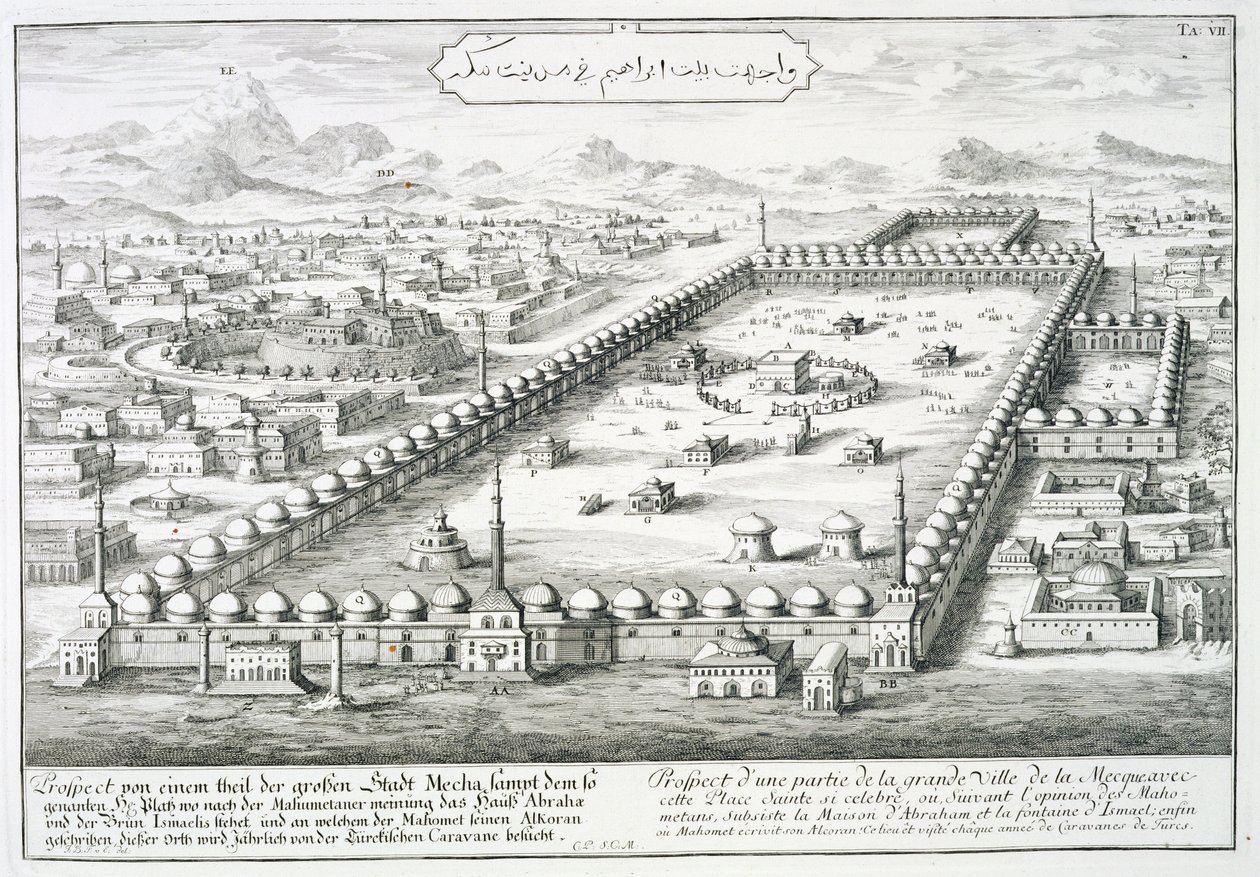 TA: VII.
واجهت بيت ابراهيم في مدينت مكه
EE
DD
X
R
T
V
M
A
N
B
D
C
E
W
H
P
F
O
Q
H
G
K
Q
Q
Q
Q
CC
AA
BB
Prospect von einem theil der großen Stadt Mecha, sampt dem so
genanten Hg Platz wo nach der Mahumetaner meinung das Hauß Abrahæ
vnd der Brun Ismaelis stehet, und an welchem der Mahomet seinen AlKoran
geschriben, dießer Orth wird Jährlich von der Türckischen Caravane besucht.
Prospect d'une partie de la grande Ville de la Mecque, avec
cette Place Sainte si celebre, où, Suivant l'opinion des Maho=
metans, Subsiste la Maison d'Abraham et la fontaine d'Ismael; enfin
où Mahomet écrivit son Alcoran: Ce lieu et visité châque année de Caravanes de Turcs.
C. P. S. C. M.